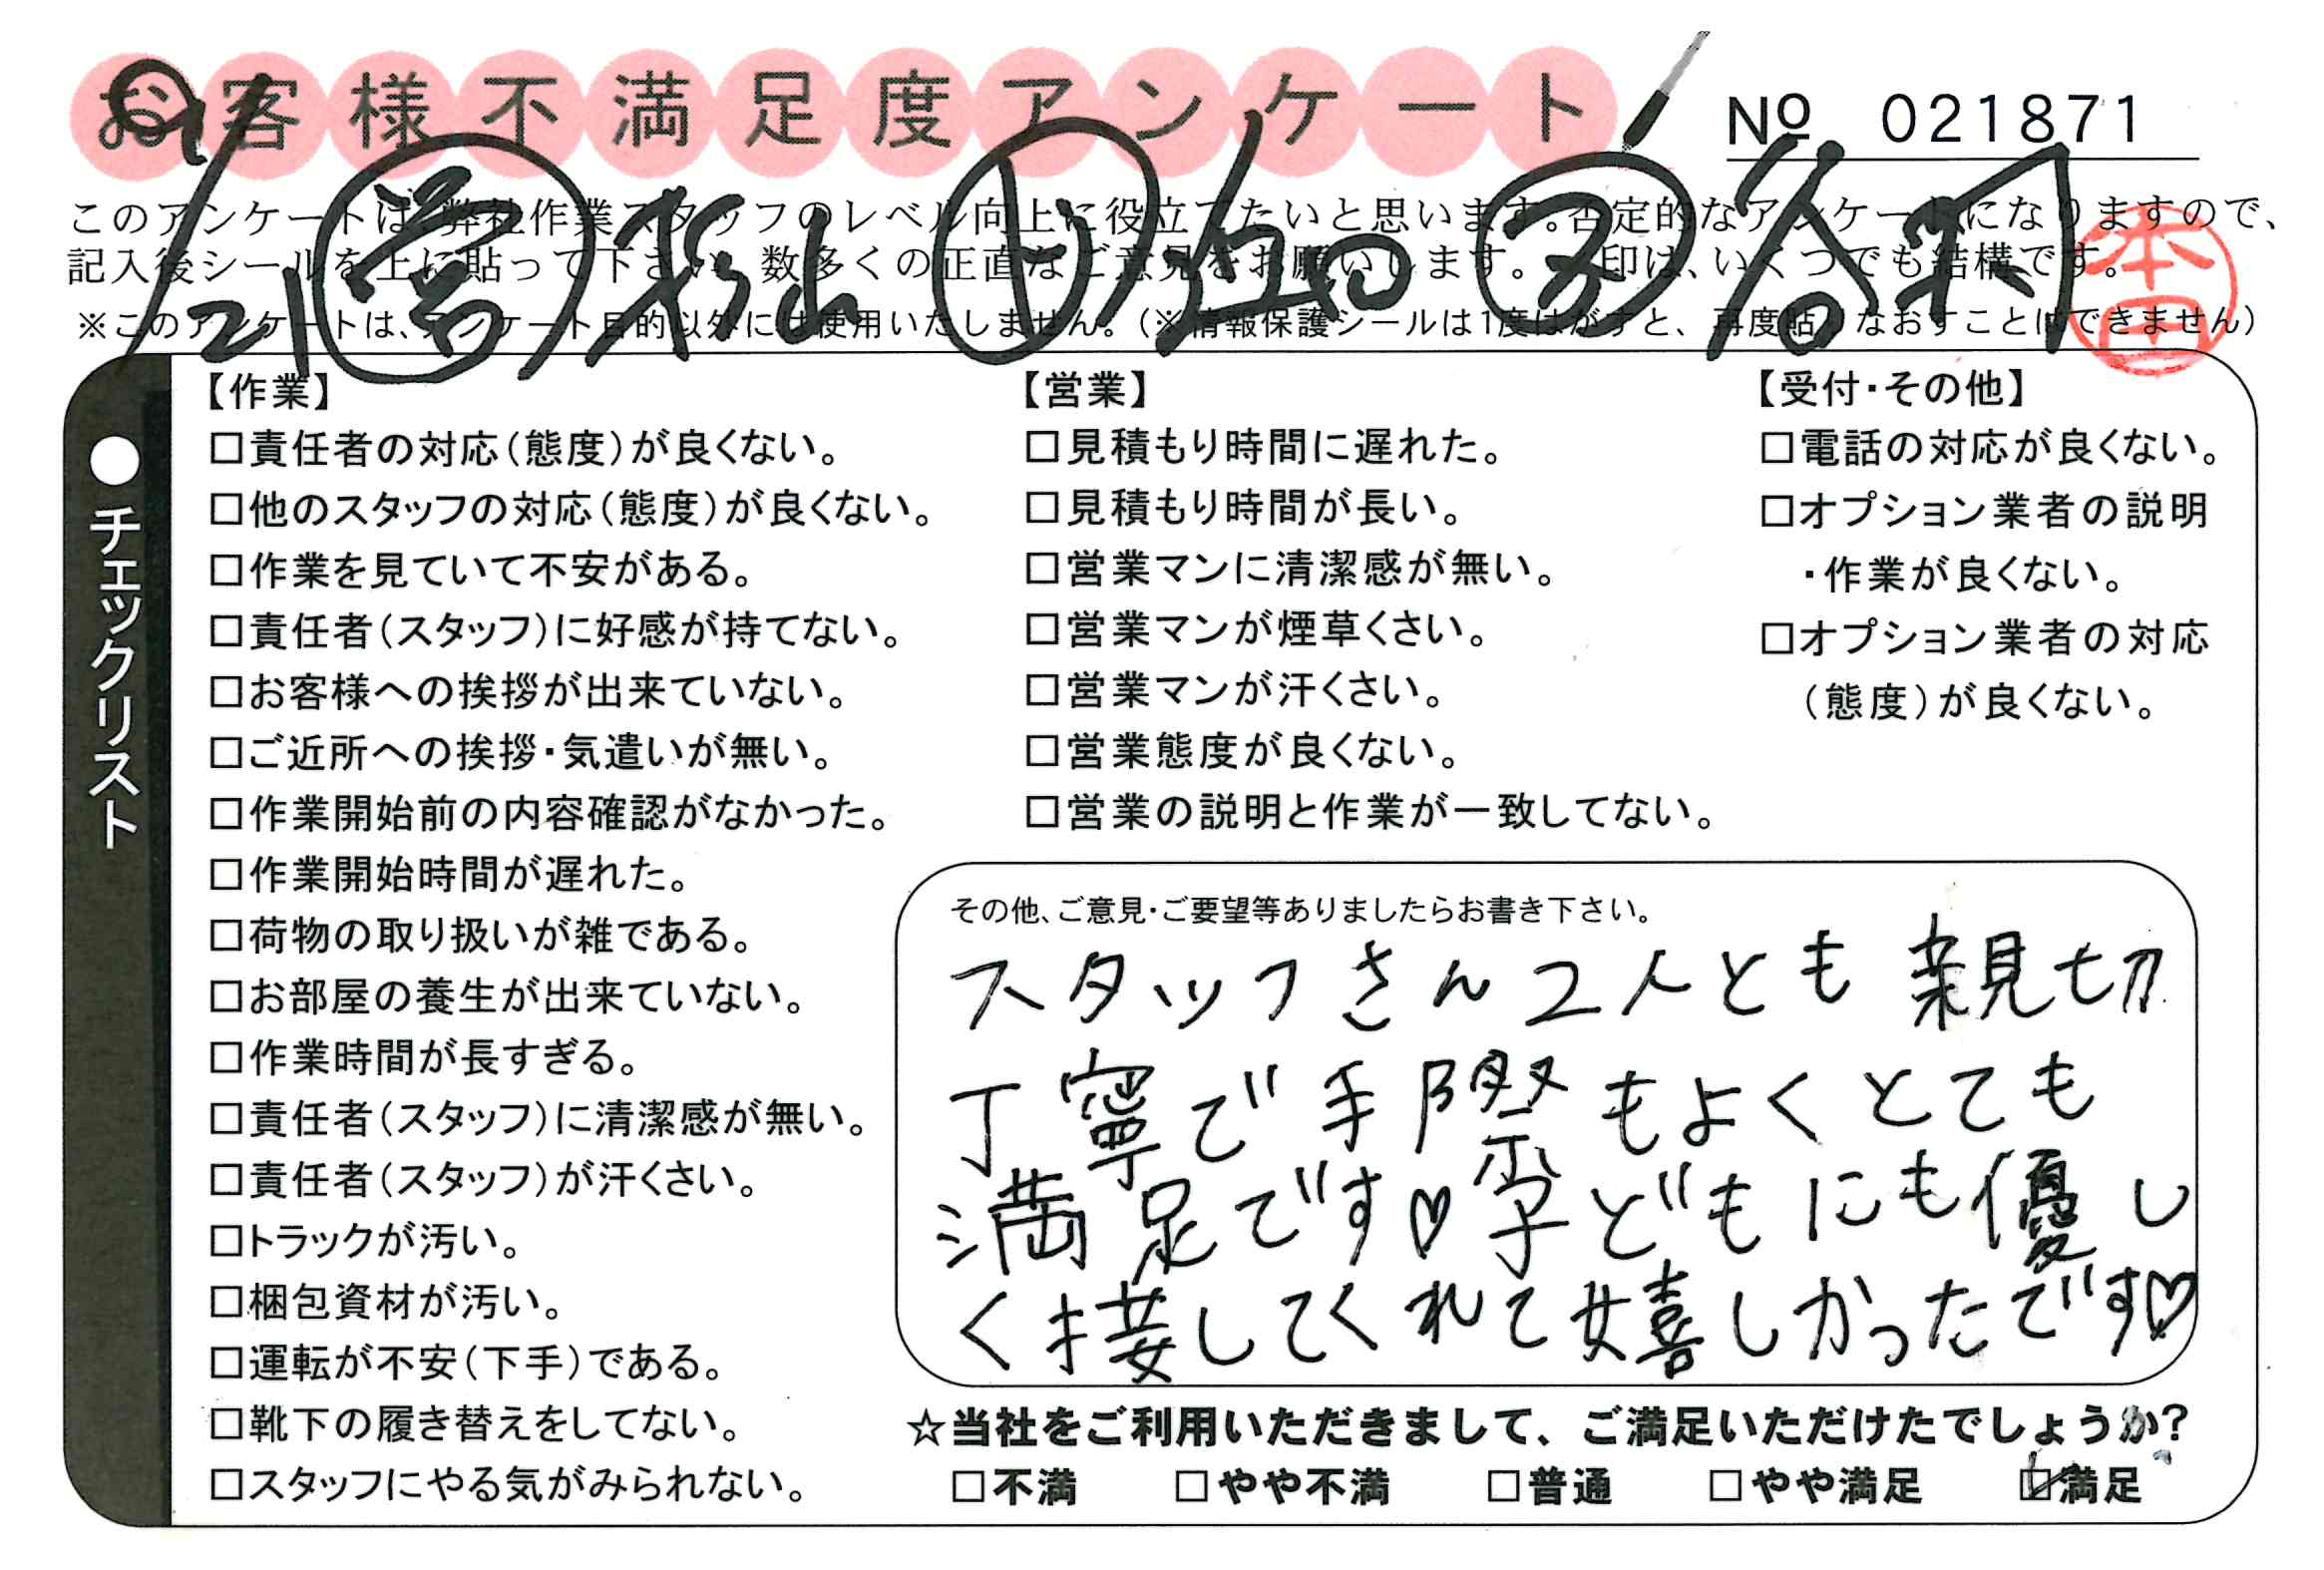 お客様不満足度アンケート
№ 021871
このアンケートは、弊社作業スタッフのレベル向上に役立てたいと思います。否定的なアンケートになりますので、
記入後シールを上に貼って下さい。数多くの正直なご意見をお願いします。 印は、いくつでも結構です。
※このアンケートは、アンケート目的以外には使用いたしません。(※情報保護シールは1度はがすと、再度貼りなおすことはできません)
9/21 営 杉山 ① ② 谷
本田
●チェックリスト
【作業】
□責任者の対応(態度)が良くない。
□他のスタッフの対応(態度)が良くない。
□作業を見ていて不安がある。
□責任者(スタッフ)に好感が持てない。
□お客様への挨拶が出来ていない。
□ご近所への挨拶・気遣いが無い。
□作業開始前の内容確認がなかった。
□作業開始時間が遅れた。
□荷物の取り扱いが雑である。
□お部屋の養生が出来ていない。
□作業時間が長すぎる。
□責任者(スタッフ)に清潔感が無い。
□責任者(スタッフ)が汗くさい。
□トラックが汚い。
□梱包資材が汚い。
□運転が不安(下手)である。
□靴下の履き替えをしてない。
□スタッフにやる気がみられない。
【営業】
□見積もり時間に遅れた。
□見積もり時間が長い。
□営業マンに清潔感が無い。
□営業マンが煙草くさい。
□営業マンが汗くさい。
□営業態度が良くない。
□営業の説明と作業が一致してない。
【受付・その他】
□電話の対応が良くない。
□オプション業者の説明
・作業が良くない。
□オプション業者の対応
(態度)が良くない。
その他、ご意見・ご要望等ありましたらお書き下さい。
スタッフさん2人とも親切
丁寧で手際もよくとても
満足です♡子どもにも優し
く接してくれて嬉しかったです♡
☆当社をご利用いただきまして、ご満足いただけたでしょうか?
□不満 □やや不満 □普通 □やや満足 ☑満足